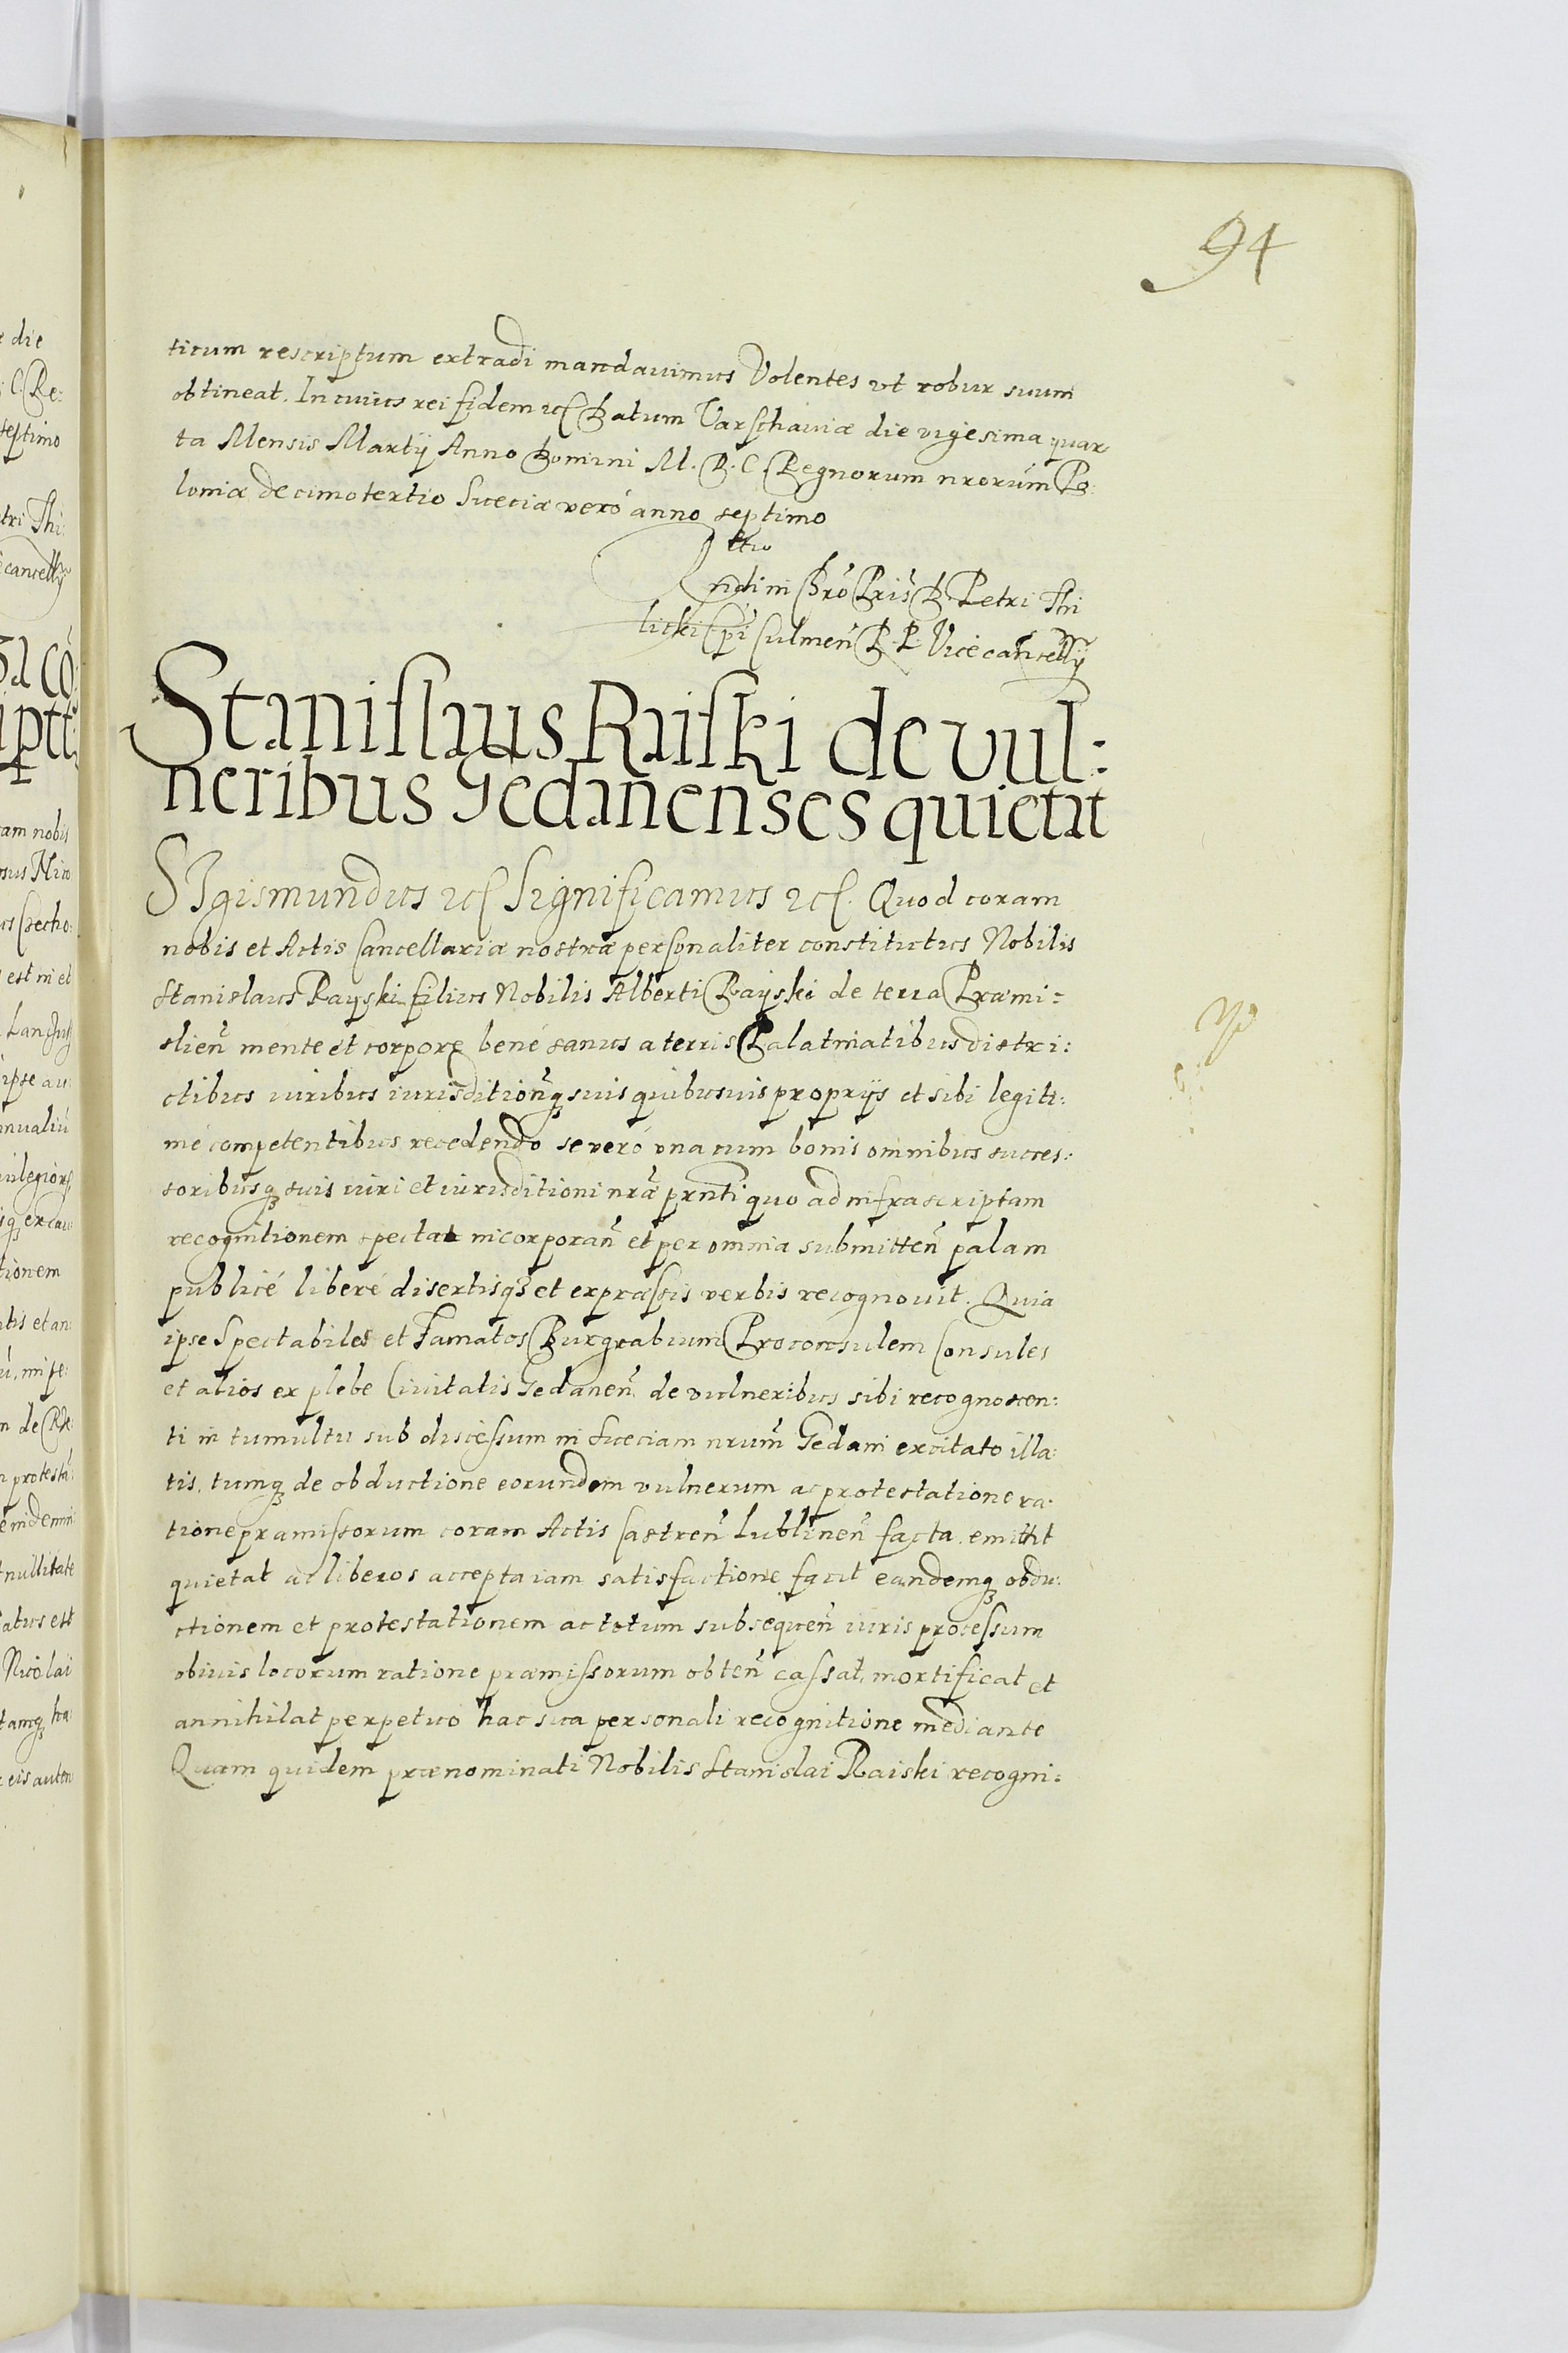 94
ticum rescriptum extradi mandauimus Volentes vt robur suum
obtineat. In cuius rei fidem etc Datum Varschauiæ die vigesima quar
ta Mensis Martij Anno Domini M. D. C. Regnorum nrorum Po:
loniæ decimotertio Sueciæ veró anno septimo
Rndi in Chro Pris D. Petri Thi
licki Epi Culmen R. P. Vicecancellrij
Stanislaus Raiski de vul:
neribus Gedanenses quietat
SIgismundus etc Significamus etc. Quod coram
nobis et Actis Cancellariæ nostræ personaliter constitutus Nobilis
Stanislaus Rayski filius Nobilis Alberti Rayski de terra Præmi:
slien mente et corpore bené sanus a terris Palatinatibus distri:
ctibus iuribus iurisditionq suis quibusuis proprijs et sibi legiti:
mé competentibus recedendo se veró vna cum bonis omnibus succes:
soribusq suis iuri et iurisditioni nræ prnti quo ad infrascriptam
recognitionem spectat incorporan et per omnia submitten palam
publicé liberé disertisq et expræssis verbis recognouit. Quia
ipse Spectabiles et Famatos Burgrabium Proconsulem Consules
et alios ex plebe Ciuitatis Gedanen de vulneribus sibi recognoscen:
ti in tumultu sub discessum in Sueciam nrum Gedani excitato illa:
tis, tumq de obductione eorundem vulnerum ac protestatione ra:
tione præmissorum coram Actis Castren Lublinen facta emittit
quietat ac liberos accepta iam satisfactione facit eandemq obdu:
ctionem et protestationem ac totum subsequen iuris processum
obiuis locorum ratione præmissorum obten cassat, mortificat et
annihilat perpetuo hac sua personali recognitione mediante
Quam quidem prænominati Nobilis Stanislai Raiski recogni: